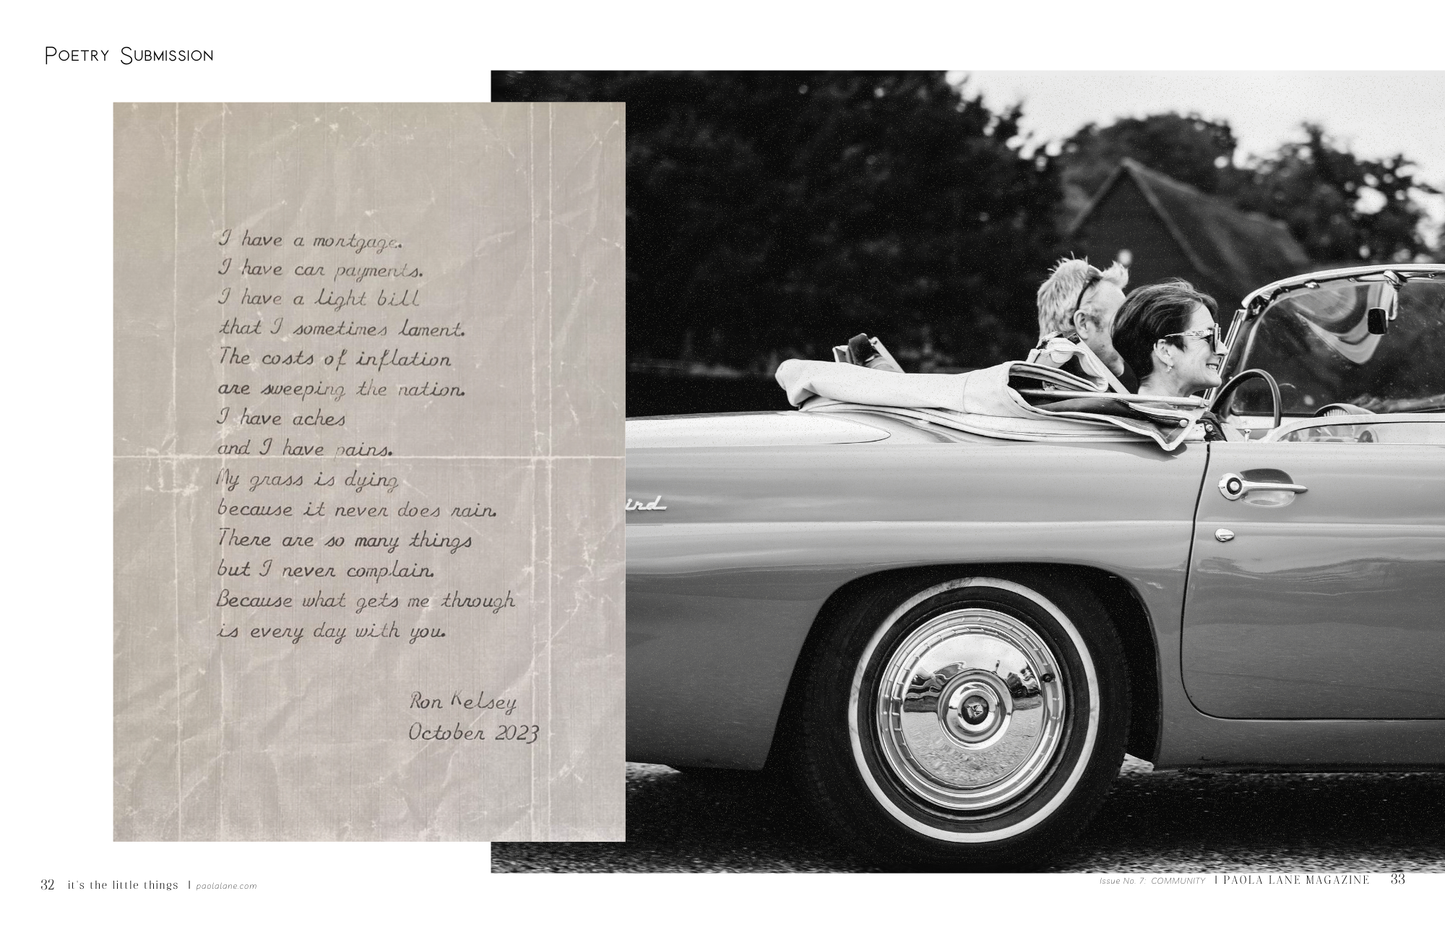 Poetry Submission
I have a mortgage.
I have car payments.
I have a light bill
that I sometimes lament.
The costs of inflation
are sweeping the nation.
I have aches
and I have pains.
My grass is dying
because it never does rain.
There are so many things
but I never complain.
Because what gets me through
is every day with you.
Ron Kelsey
October 2023
ird
32 it's the little things | paolalane.com
Issue No. 7: COMMUNITY | PAOLA LANE MAGAZINE 33